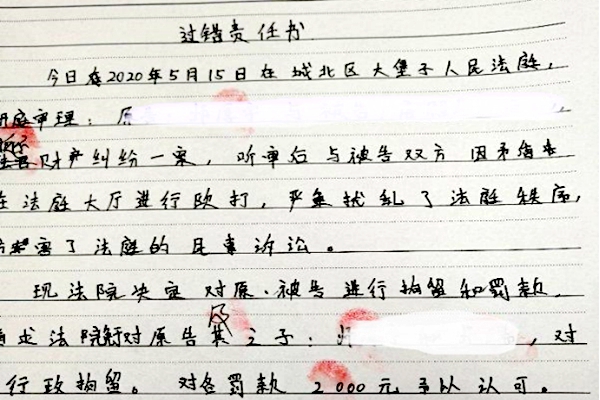 过错责任书
今日在2020年5月15日在城北区大堡子人民法庭，
开庭审理：原
财产纠纷一案，听审后与被告双方因矛盾
在法庭大厅进行殴打，严重扰乱了法庭秩序，
害了法庭的民事诉讼。
现法院决定对原、被告进行拘留和罚款，
求法院对原告及其之子：，对
行政拘留。对各罚款2000元予以认可。